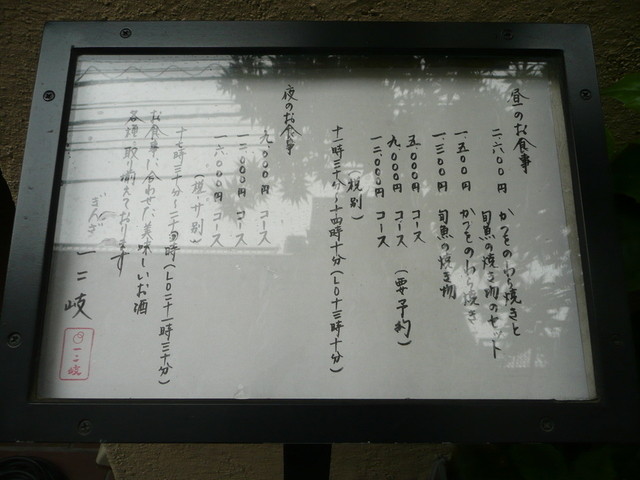 昼のお食事
二、六〇〇円 かつをのわら焼きと
旬魚の焼き物のセット
一、五〇〇円 かつをのわら焼き
一、三〇〇円 旬魚の焼き物
五、〇〇〇円 コース
九、〇〇〇円 コース (要予約)
一二、〇〇〇円 コース
(税別)
十一時三十分〜十四時十分(LO十三時十分)
夜のお食事
九、〇〇〇円 コース
一二、〇〇〇円 コース
一六、〇〇〇円 コース
(税サ別)
十七時三十分〜二十三時(LO二十一時三十分)
お食事に合わせた、美味しいお酒
各種取り揃えております
ぎんざ 一二岐
一二岐